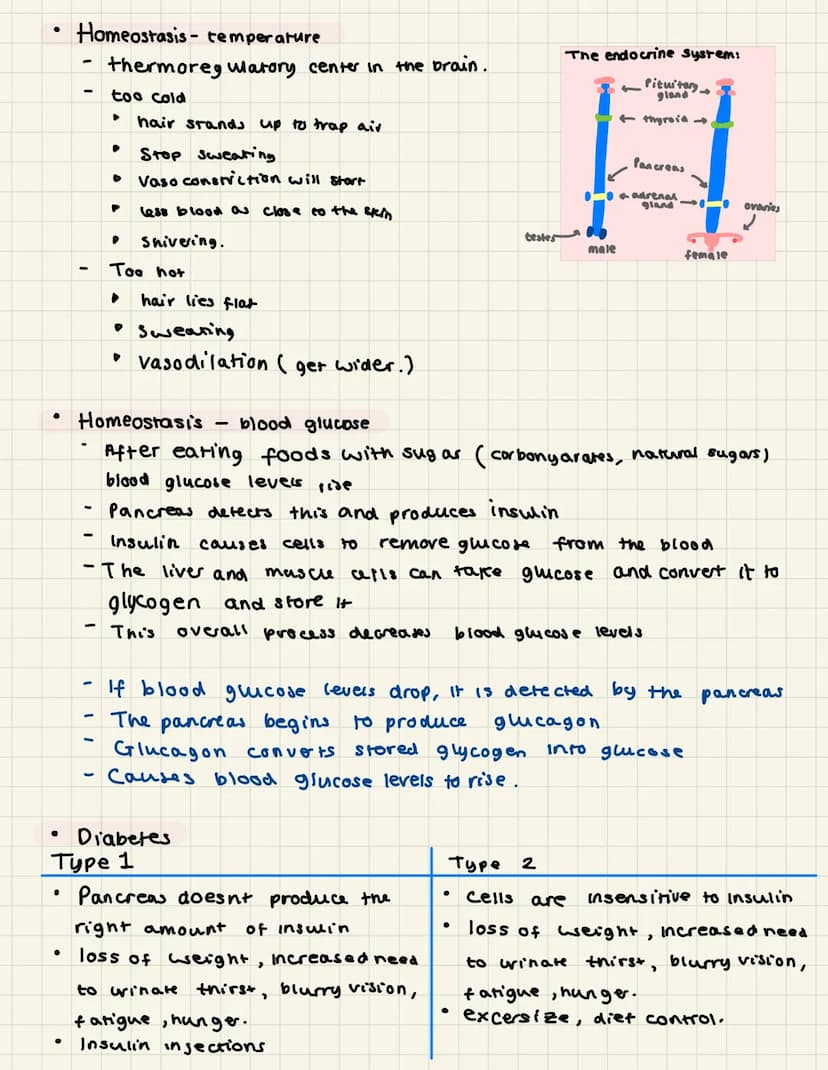 • Homeostasis - temperature
- thermoregulatory center in the brain.
- too cold
• hair stands up to trap air
• Stop sweating
• Vasoconstriction will start
• less blood as close to the skin
• shivering.
- Too hot
• hair lies flat
• Sweating
• Vasodilation (get wider.)
The endocrine system:
Pituitary
gland
thyroid
Pancreas
adrenal
gland
ovaries
testes
male
female
• Homeostasis - blood glucose
- After eating foods with sugar (carbohydrates, natural sugars)
blood glucose levels rise
- Pancreas detects this and produces insulin
- Insulin causes cells to remove glucose from the blood
- The liver and muscle cells can take glucose and convert it to
glycogen and store it
- This overall process decreases blood glucose levels
- If blood glucose levels drop, it is detected by the pancreas
- The pancreas begins to produce glucagon
- Glucagon converts stored glycogen into glucose
- Causes blood glucose levels to rise.
• Diabetes
Type 1
• Pancreas doesnt produce the
right amount of insulin
• loss of weight, increased need
to urinate thirst, blurry vision,
fatigue, hunger.
• Insulin injections
Type 2
• Cells are insensitive to insulin
• loss of weight, increased need
to urinate thirst, blurry vision,
fatigue, hunger.
• excersize, diet control.